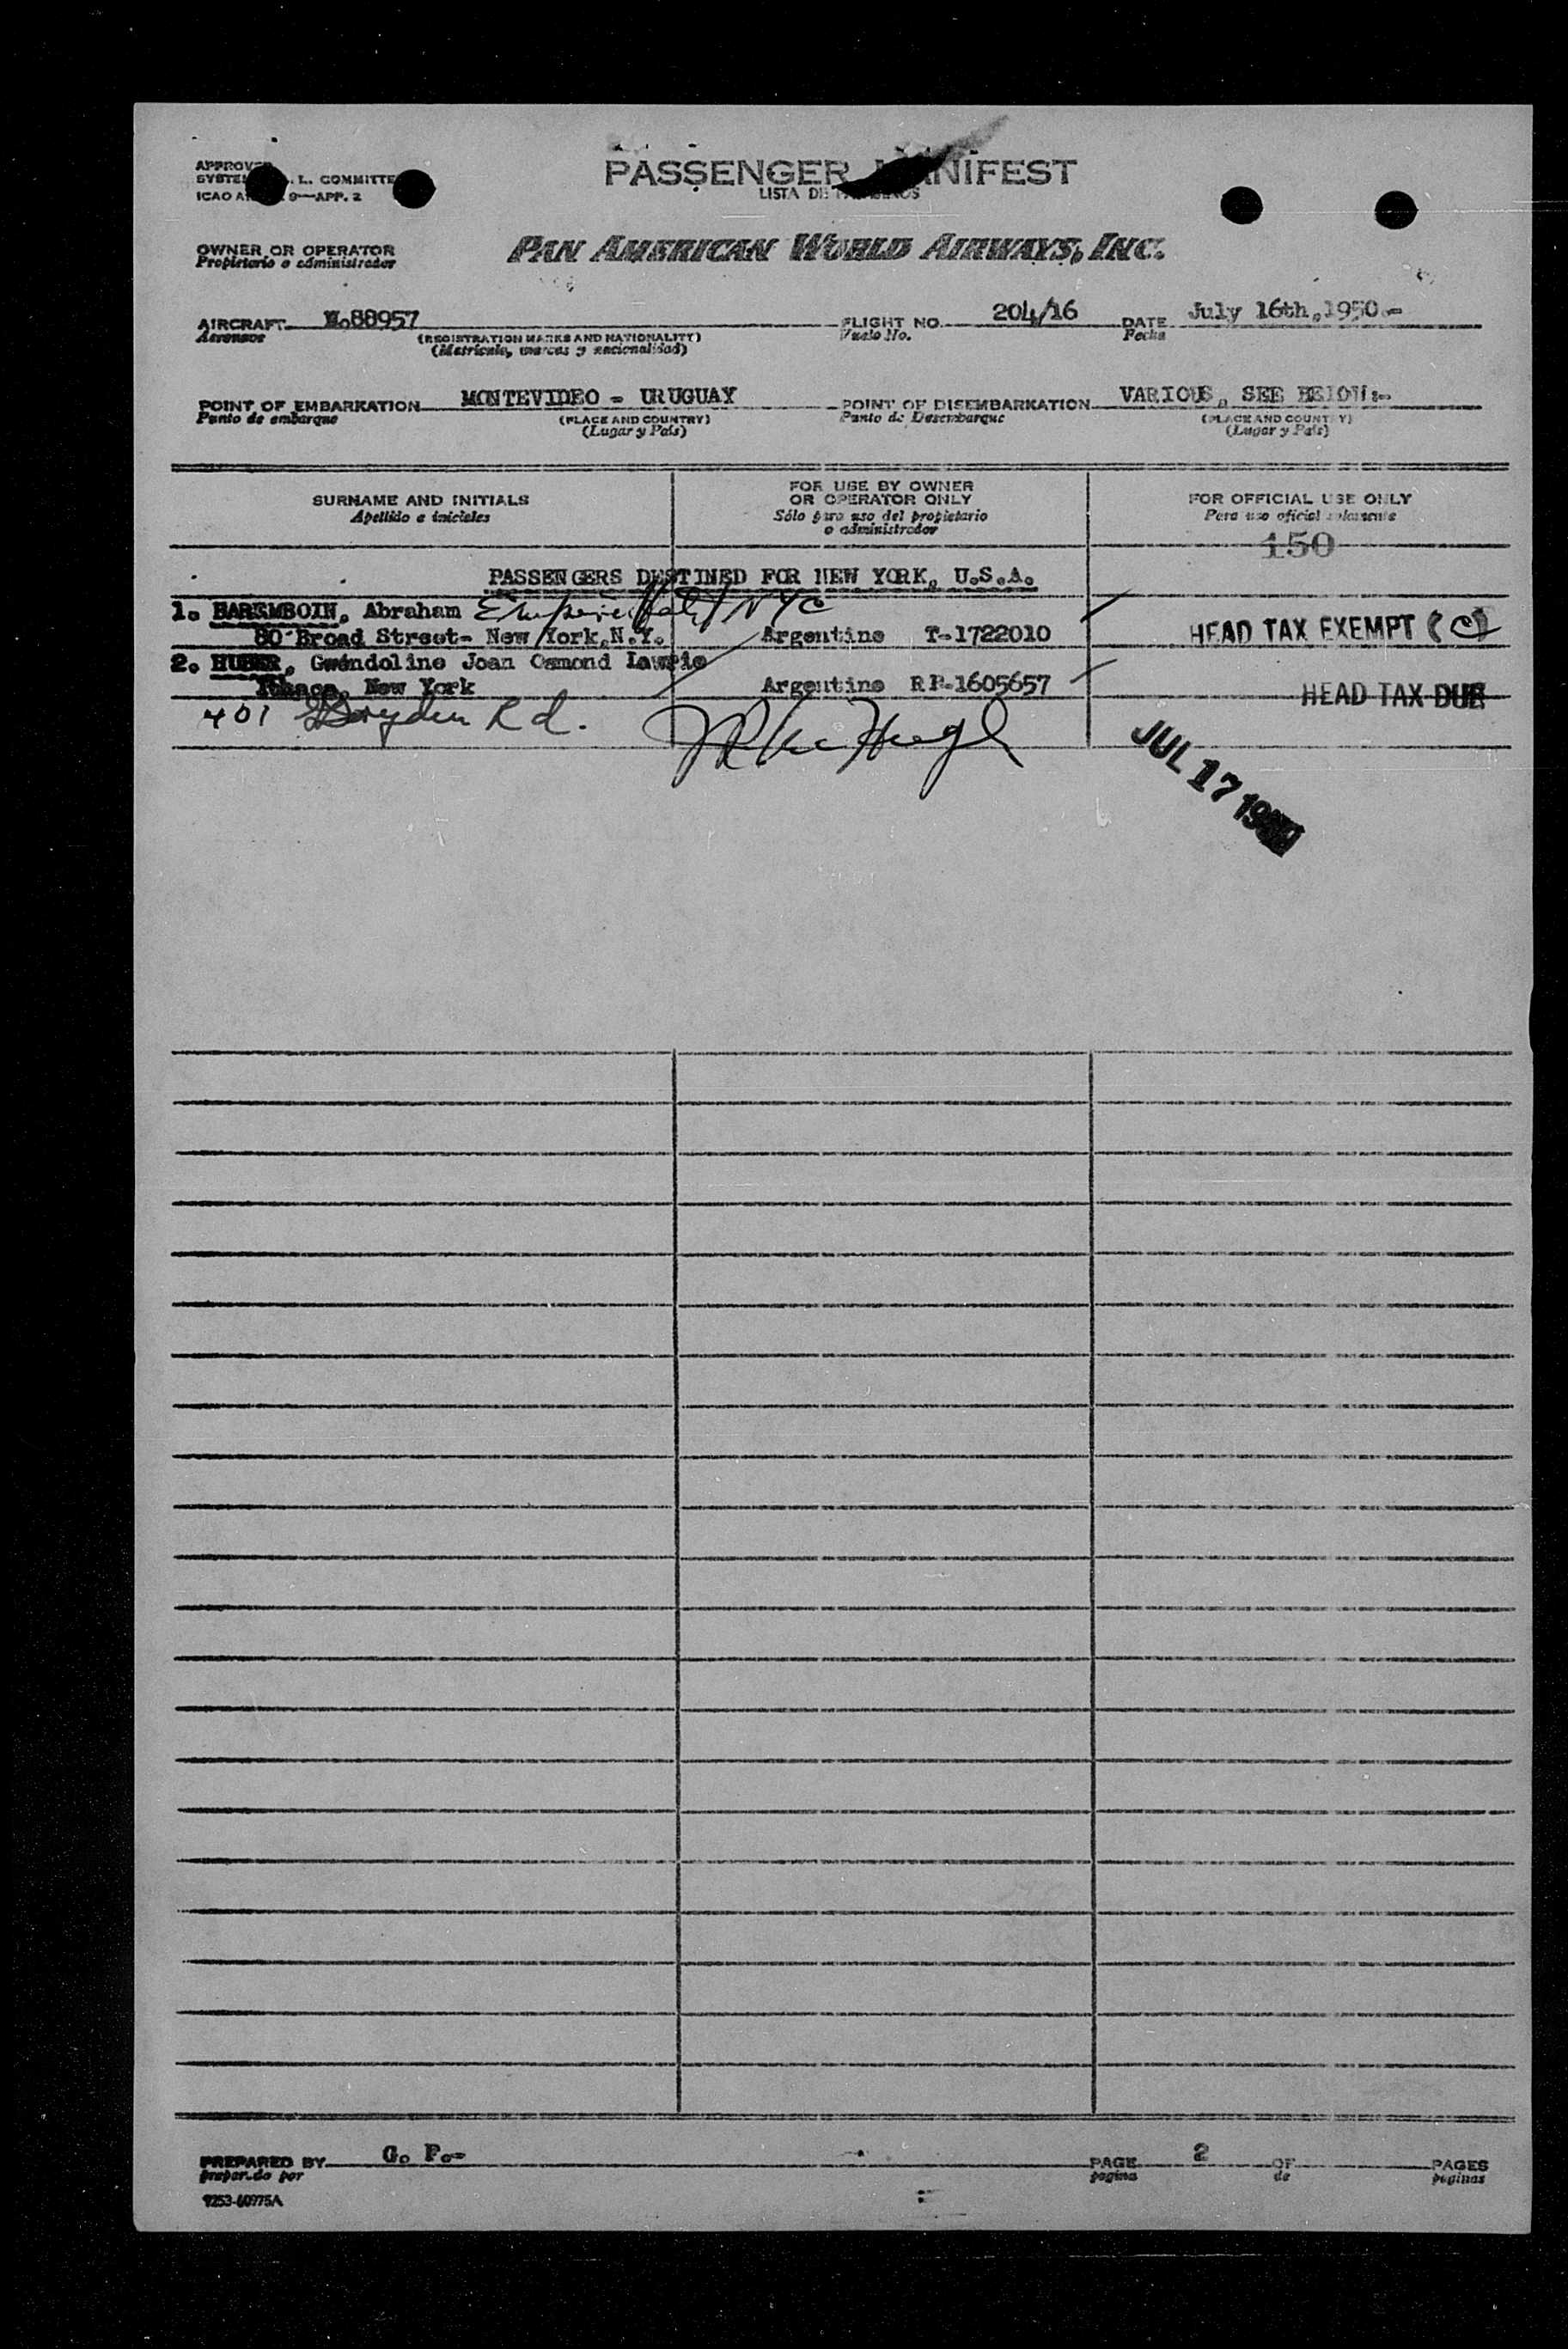 PASSENGER MANIFEST
LISTA DE
L. COMMITTE
ICAO A 9—APP. 2
OWNER OR OPERATOR PAN AMERICAN WORLD AIRWAYS, INC.
Propietario o administrador
AIRCRAFT N.88957 FLIGHT NO. 204/16 DATE July 16th,1950.-
Aeronave (REGISTRATION MARKS AND NATIONALITY) Vuelo No. Fecha
(Matrícula, marcas y nacionalidad)
POINT OF EMBARKATION MONTEVIDEO - URUGUAY POINT OF DISEMBARKATION VARIOUS, SEE BELOW:-
Punto de embarque (PLACE AND COUNTRY) Punto de Desembarque (PLACE AND COUNTRY)
(Lugar y País) (Lugar y País)
SURNAME AND INITIALS
Apellido e iniciales
FOR USE BY OWNER
OR OPERATOR ONLY
Sólo para uso del propietario
o administrador
FOR OFFICIAL USE ONLY
Para uso oficial solamente
150
PASSENGERS DESTINED FOR NEW YORK, U.S.A.
1. BAREMBOIN, Abraham NYC
80 Broad Street- New York,N.Y. Argentino T-1722010 HEAD TAX EXEMPT (C)
2. HUBER, Gwendoline Joan Osmond Lawrie
Ithaca, New York Argentino RP-1605657 HEAD TAX DUE
401 Dryden Rd.
JUL 17 19
PREPARED BY G. P.- PAGE 2 OF PAGES
preparado por pagina de paginas
9253-60975A